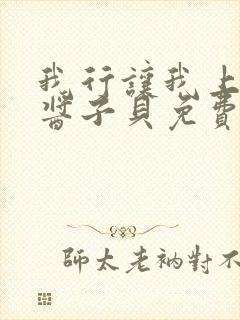 我行讓我上
醬子貝免費
師太老衲對不